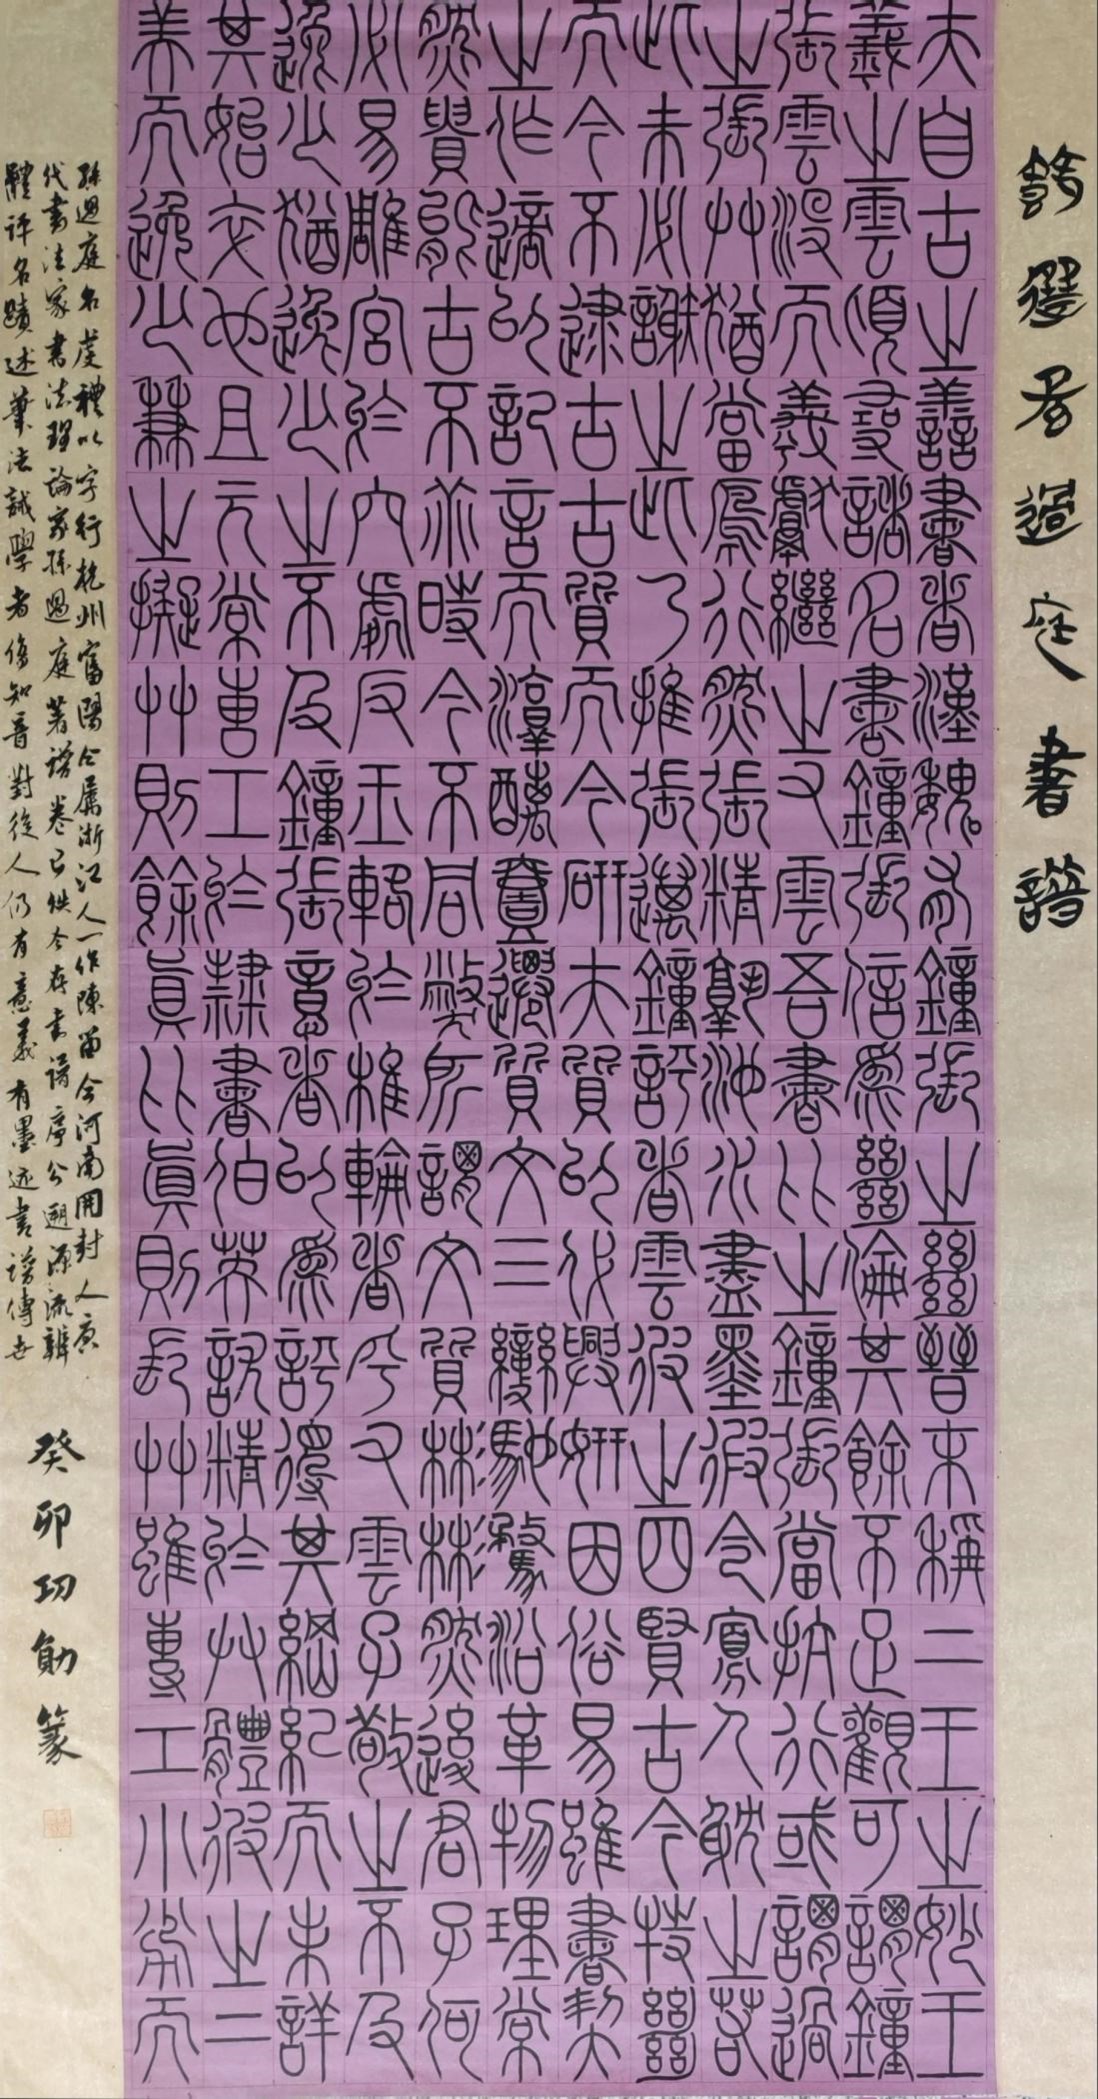 節選孫過庭書譜
夫自古之善書者漢魏有鐘張之絕晉末稱二王之妙王
羲之雲頃尋諸名書鐘張信為絕倫其餘不足觀可謂鐘
張雲沒而羲獻繼之又雲吾書比之鐘張當抗行或謂過
之張草猶當雁行然張精熟池水盡墨假令寡人耽之若
此未必謝之此乃推張邁鐘評者雲彼之四賢古今特絕
而今不逮古古質而今妍夫質以代興妍因俗易雖書契
之作適以記言而淳醨壹遷質文三變馳騖沿革物理常
然貴能古不乖時今不同弊所謂文質彬彬然後君子何
必易雕宮於穴處反玉輅於椎輪者乎又雲子敬之不及
逸少猶逸少之不及鐘張意者以為評得其綱紀而未詳
其始卒也且元常專工於隸書伯英尤精於草體彼之二
美而逸少兼之擬草則餘真比真則長草雖專工小劣而
孫過庭名虔禮以字行杭州富陽今屬浙江人一作陳留今河南開封人唐
代書法家書法理論家孫過庭著譜卷已佚今存書譜序分溯源流辨
體評名蹟述筆法誡學者傷知音對後人仍有意義有墨迹書譜傳世
癸卯功勛篆